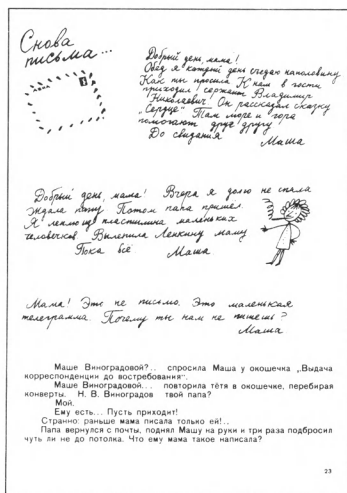 Снова
письма...
Добрый день, мама!
Обед я каждый день съедаю наполовину
Как ты просила К нам в гости
приходил сержант Владимир
Николаевич Он рассказал сказку
„Сердце" Там море и гора
помогают друг другу
До свидания
Маша
Добрый день, мама! Вчера я долго не спала
Ждала папу Потом папа пришел
Я леплю из пластилина маленьких
человечков Вылепила Ленкину маму
Пока всё Маша
Мама! Это не письмо. Это маленькая
телеграмма. Почему ты нам не пишешь?
Маша
Маше Виноградовой?.. спросила Маша у окошечка „Выдача
корреспонденции до востребования".
Маше Виноградовой... повторила тётя в окошечке, перебирая
конверты. Н. В. Виноградов твой папа?
Мой.
Ему есть... Пусть приходит!
Странно: раньше мама писала только ей!..
Папа вернулся с почты, поднял Машу на руки и три раза подбросил
чуть ли не до потолка. Что ему мама такое написала?
23